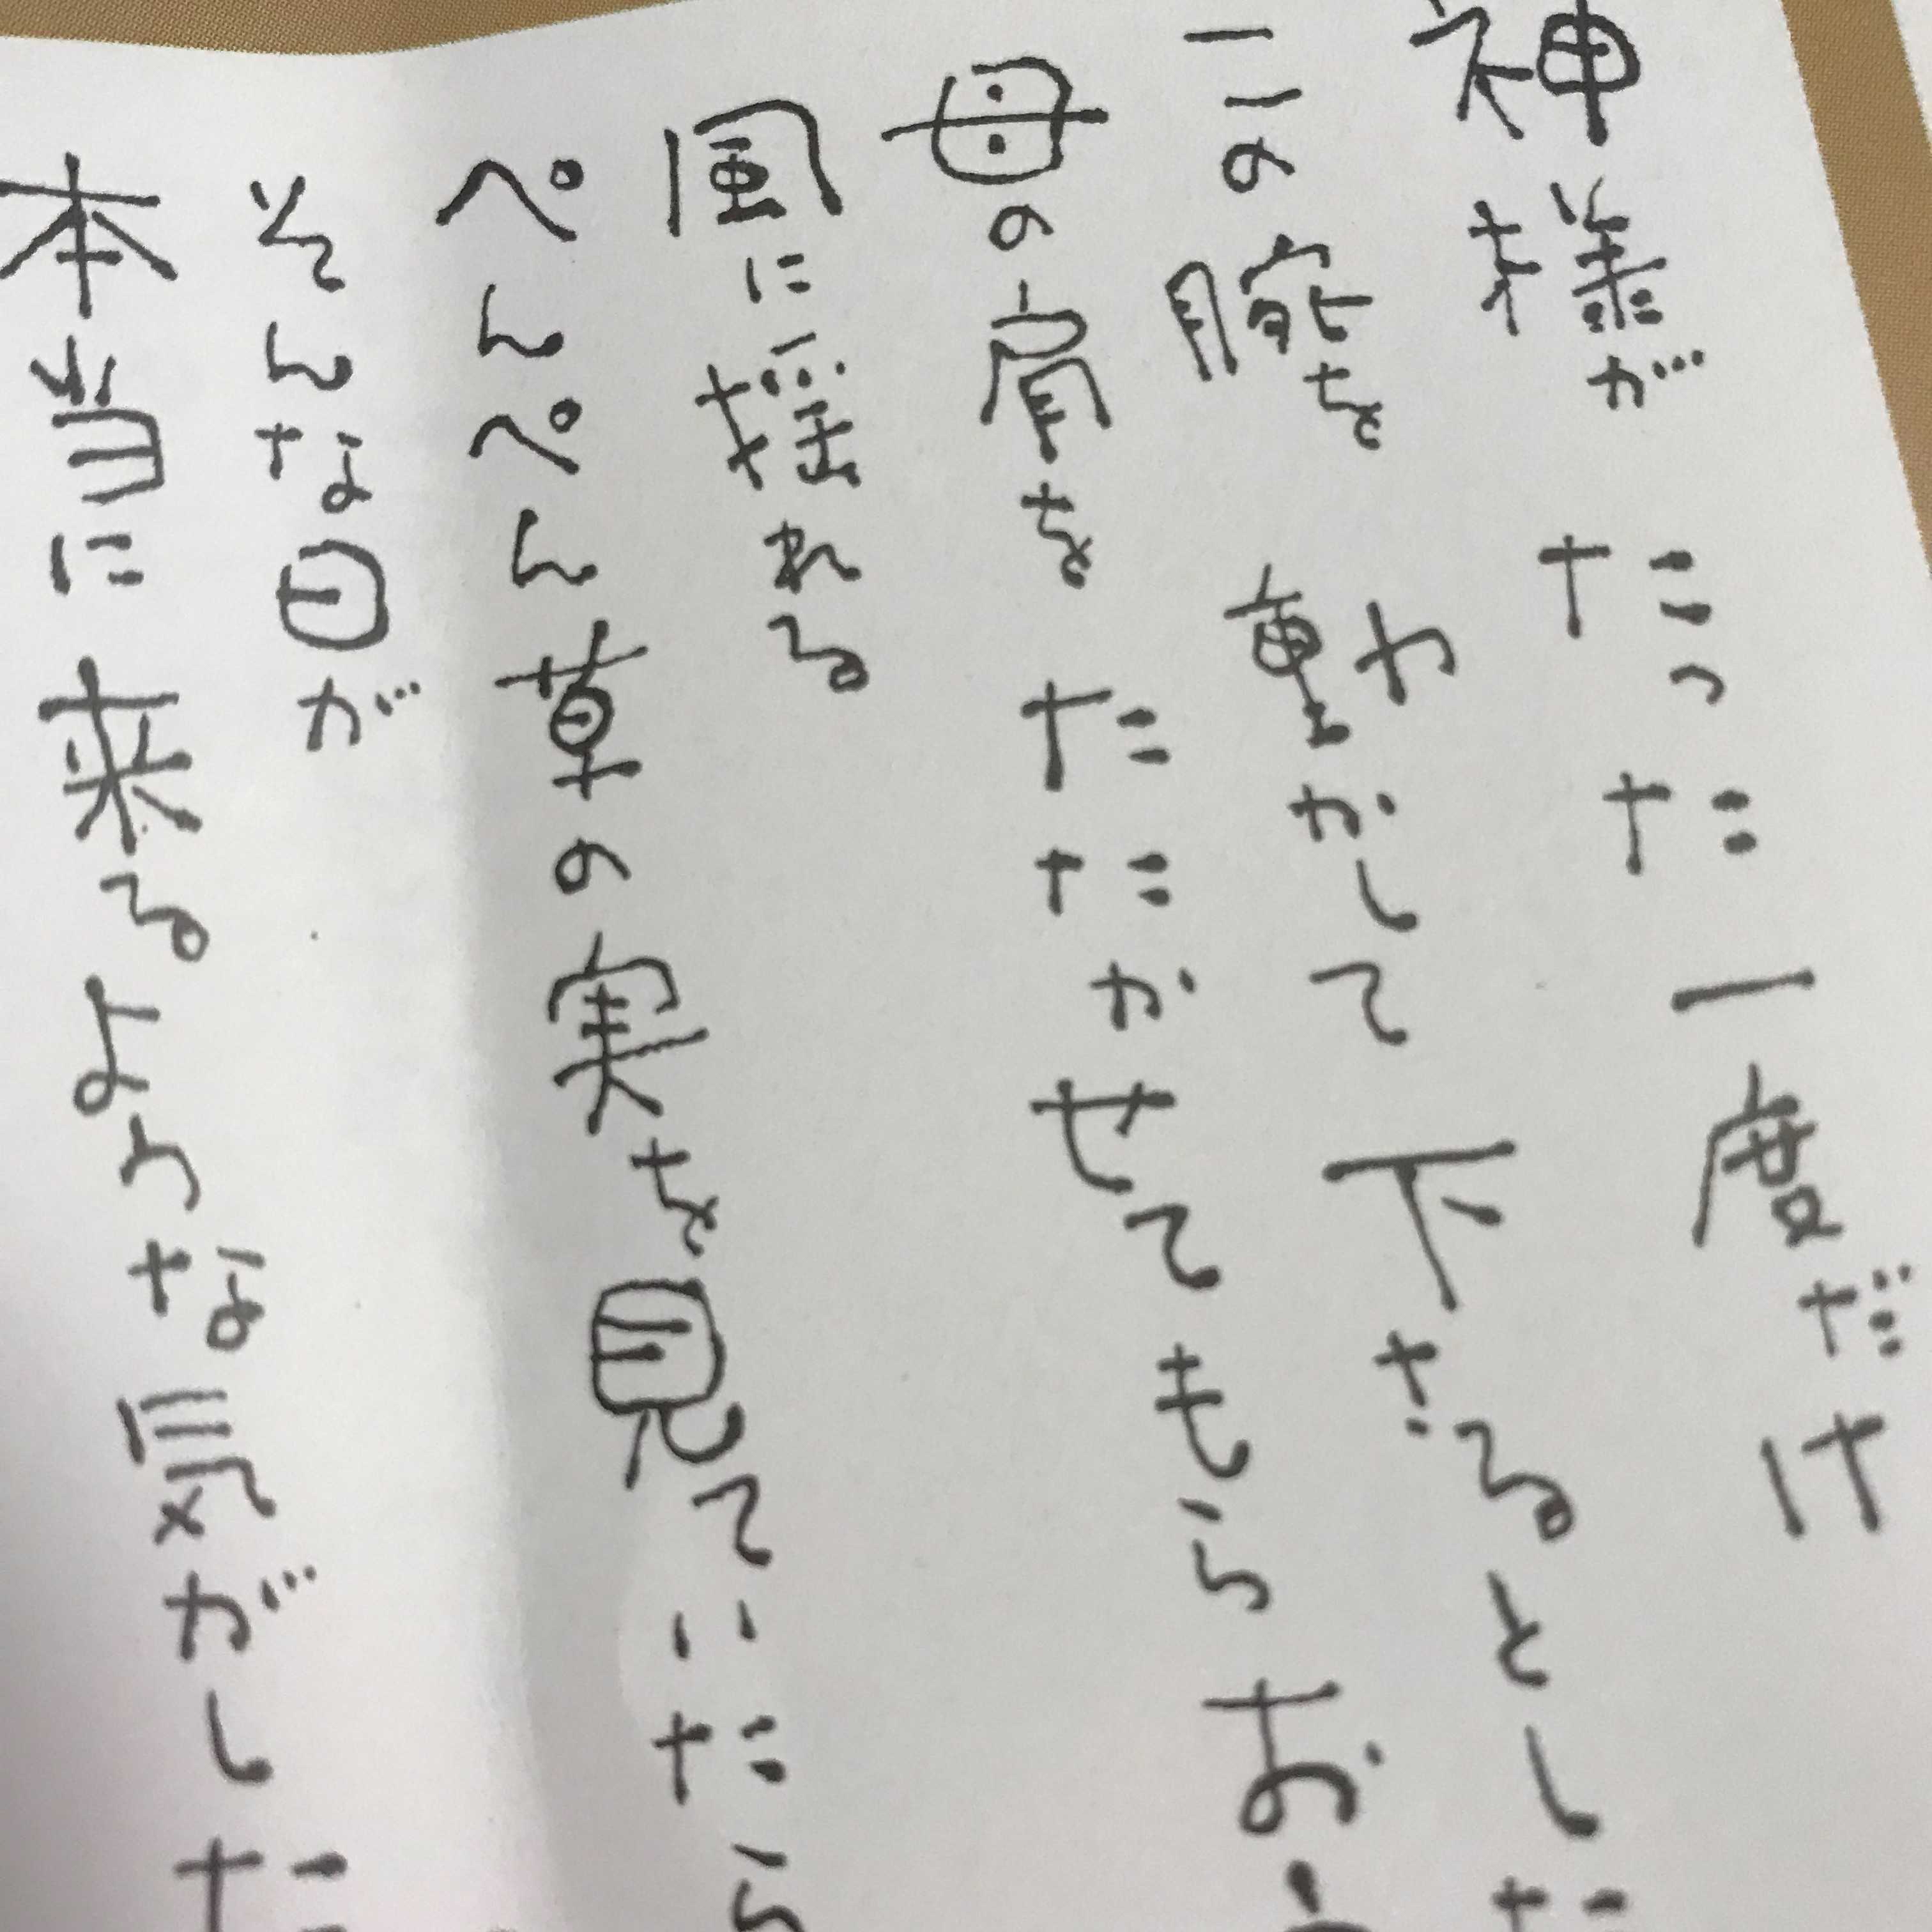 神様がたった一度だけ
この腕を動かして下さるとした
母の肩をたたかせてもらおう
風に揺れる
ぺんぺん草の実を見ていたら
そんな日が
本当に来るような気がした